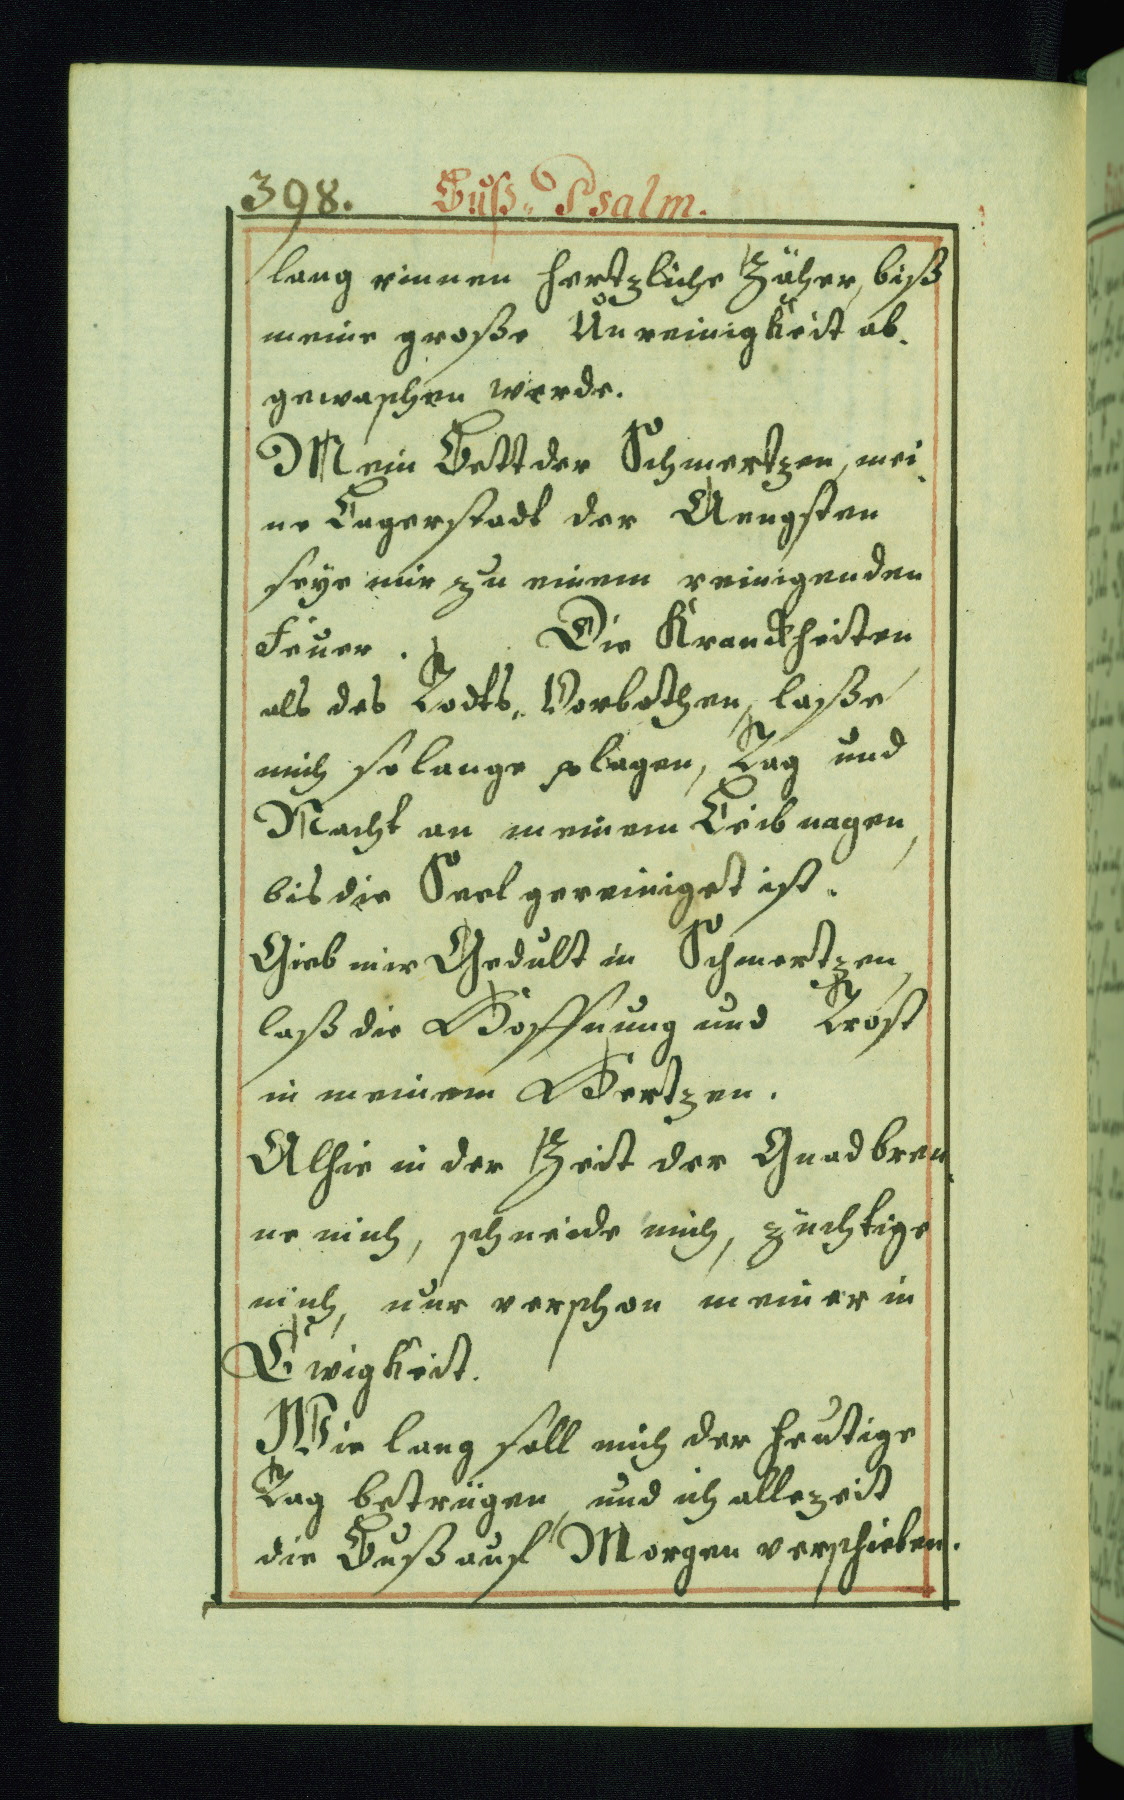 398. Buß-Psalm.
lang rinnen hertzliche Zäher, biß
meine große Unreinigkeit ab-
gewaschen werde.
Mein Bett der Schmertzen, mei-
ne Lagerstadt der Aengsten
seye mir zu einem reinigenden
Feuer. Die Kranckheiten
als des Todts-Vorbothen, laße
mich so lange plagen, Tag und
Nacht an meinem Leib nagen,
bis die Seel gereiniget ist.
Gieb mir Gedult in Schmertzen,
laß die Hoffnung und Trost
in meinem Hertzen.
Alhie in der Zeit der Gnad bren-
ne mich, schneide mich, züchtige
mich, nur verschon meiner in
Ewigkeit.
Wie lang soll mich der heutige
Tag betrügen, und ich allezeit
die Buß auf Morgen verschieben.